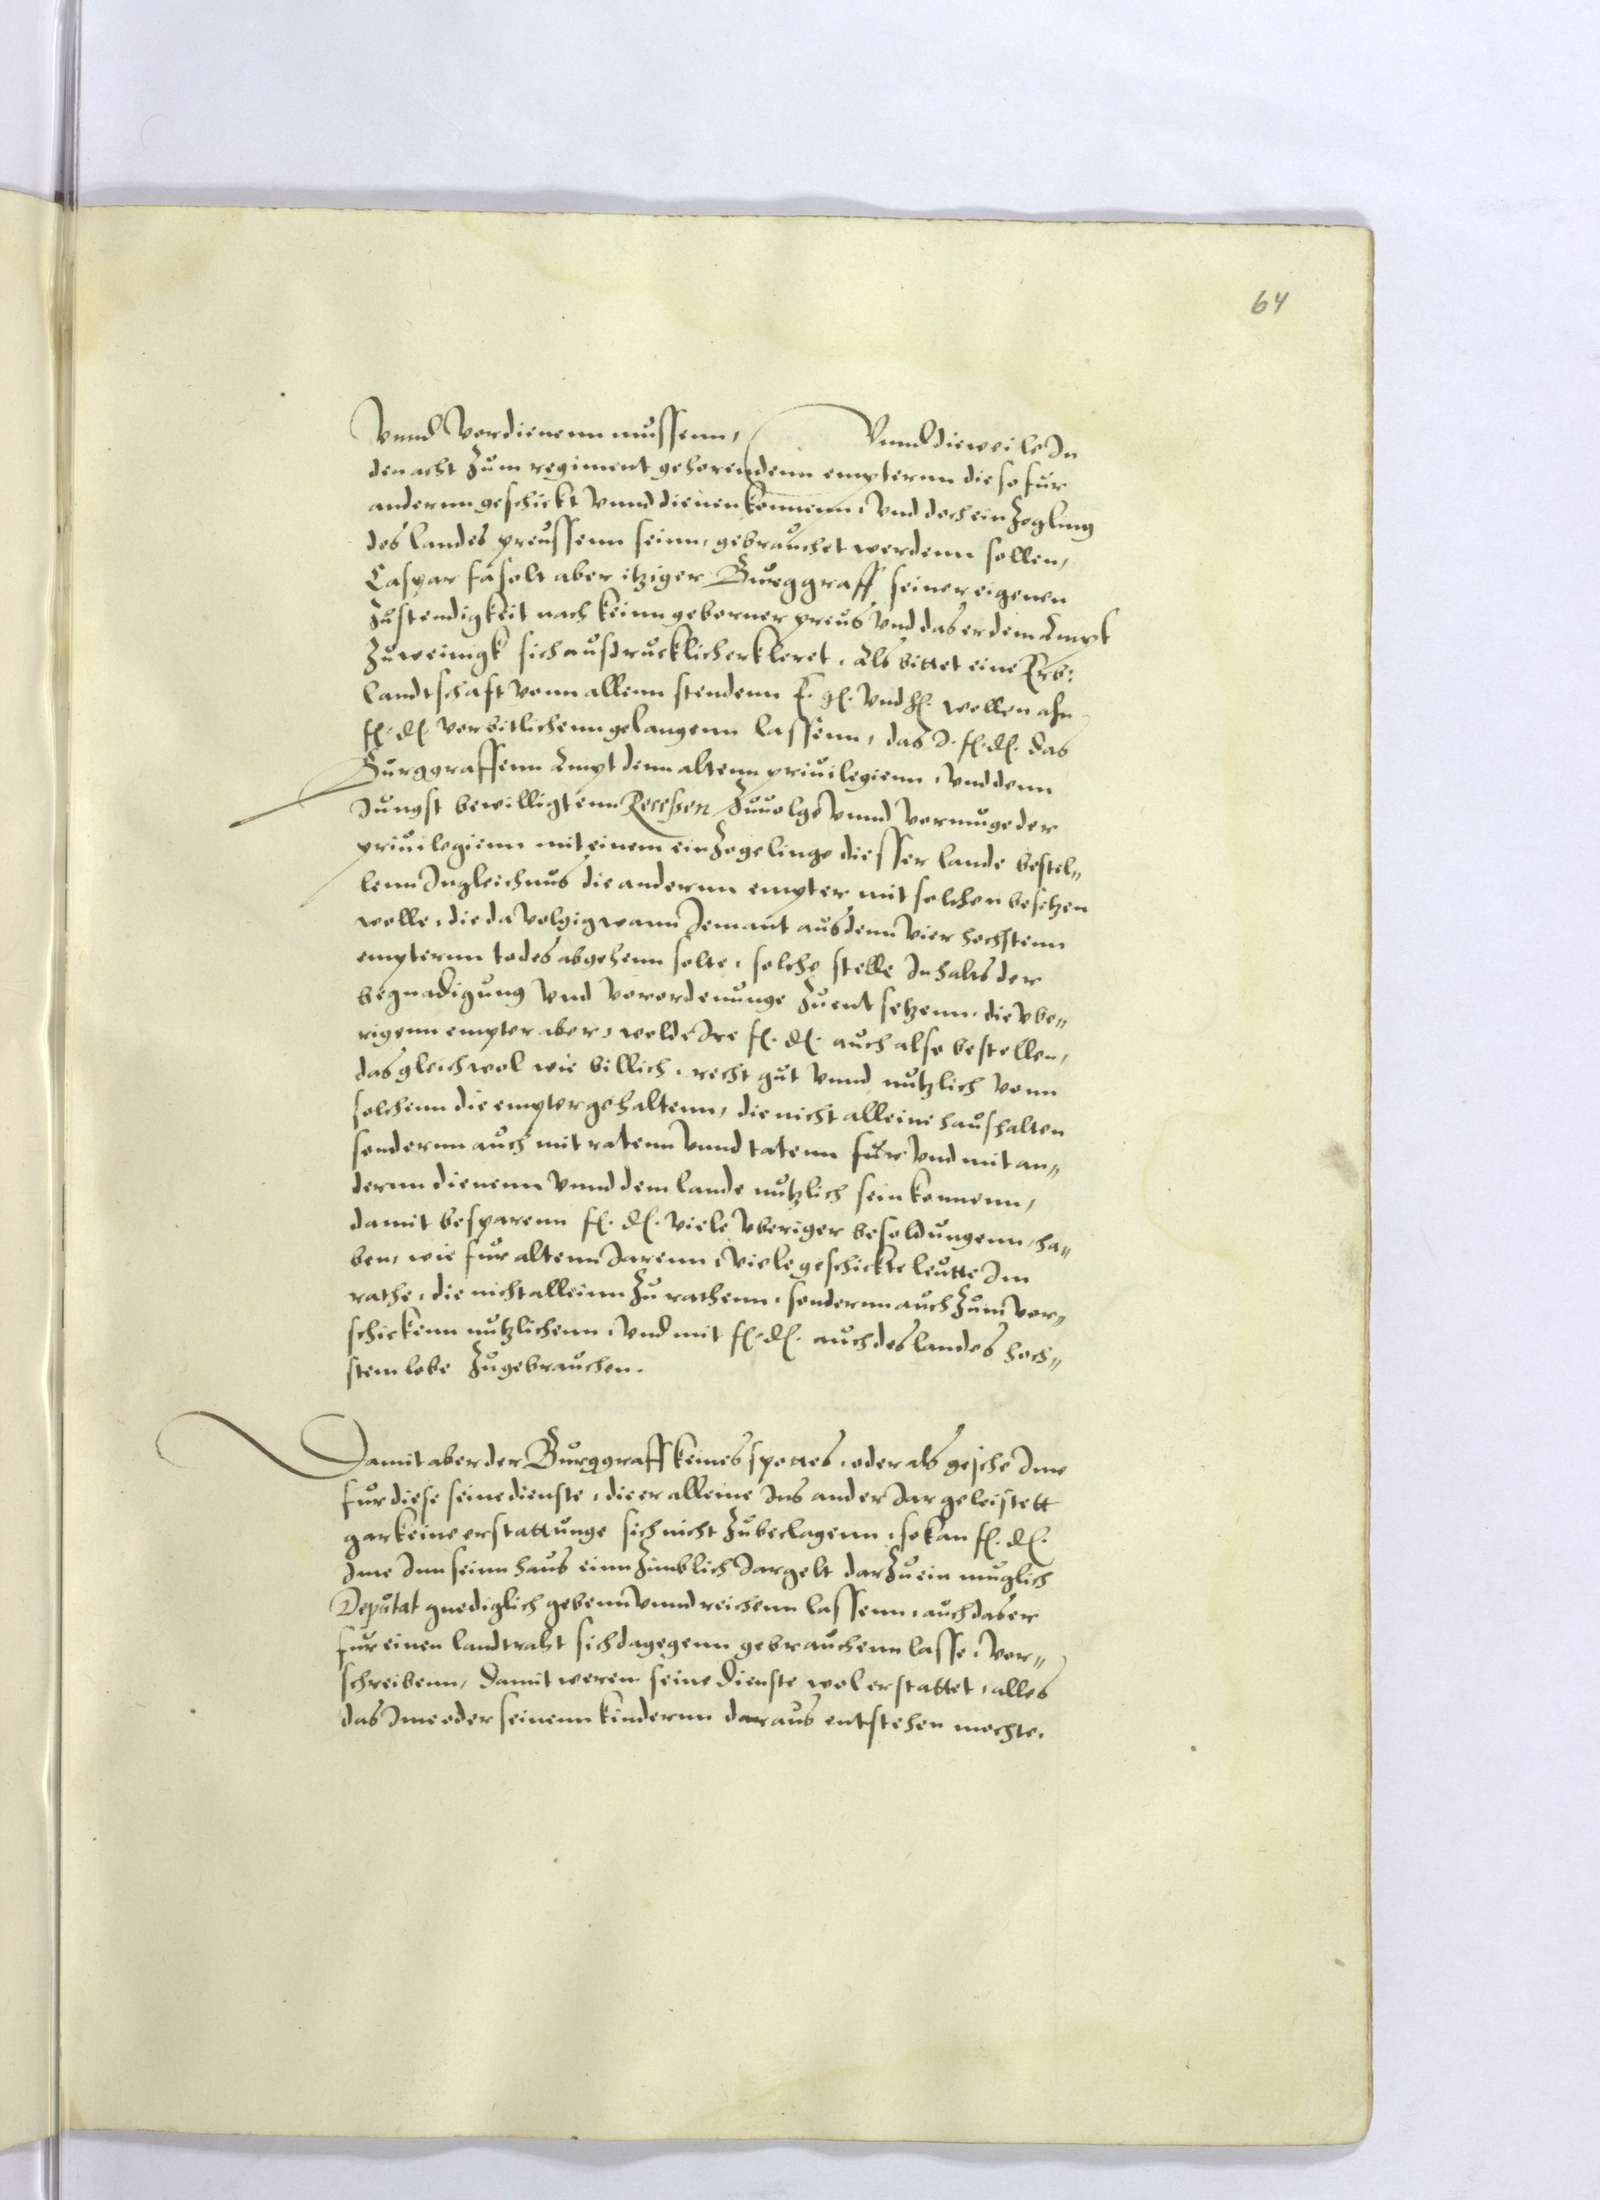 64
vnnd vordienenn mussenn, Vnnd dieweile In
den acht zum regiment gehorendenn empternn die so fur
andernn geschickt vnnd dienen konnenn, vnd doch ein Zogling
des landes preussenn seinn, gebrauchet werdenn sollen,
Caspar Fasolt aber itziger Burggraff seiner eigenen
zustendigkeit nach kein geborner preus vnd das er dem Ampt
zu wenigk sich ausdrucklich erkleret, Als bittet eine Erb:
landtschaft vonn allenn stendenn E. g. vnd h. wollen ahn
f. d. vorbitlichenn gelangenn lassenn, das I. f. d. das
Burggraffenn Ampt denn altenn priuilegienn, vnd denn
Jungst bewilligtenn Recessen zuuolge vnnd vormuge der
priuilegienn mit einem ein Zogelinge diesser lande bestel„
lenn Ingleichnus die andernn empter mit solchen besetzen
wolle, die da volgig wann Jemant aus denn vier hochstenn
empternn todes abgehenn solte, solche stelle Inhalts der
begnadigung vnd vorordenunge zuent setzenn, die vbe„
rigenn empter aber, wolde Ire f. d. auch also bestellen,
das gleichwol wie billich, recht gut vnnd nutzlich vonn
solchenn die empter gehaltenn, die nicht alleine haushalten
sondernn auch mit ratenn vnnd tatenn fur vnd mit an„
dernn dienenn vnnd dem lande nutzlich sein konnenn,
damit besparenn f. d. viele vberiger besoldungenn, ha„
ben, wie fur altenn Jarenn, viele geschickte leutte Im
rathe, die nicht alleinn zu rathenn, sondernn auch zum vor„
schickenn nutzlichenn, vnd mit f. d. auch des landes hoch„
stem lobe zugebrauchen.
Damit aber der Burggraff keines spottes, oder als geschehe Ime
fur diese seine dienste, die er alleine Ins ander Jar geleistett
gar keine erstattunge sich nicht zubeclagenn, so kan f. d.
Ime Inn seinn haus einn zimblich Jargelt darzu ein muglich
Deputat gnediglich gebenn vnnd reichenn lassenn, auch das er
fur einen landtraht sich dagegenn gebrauchenn lasse, vor„
schreibenn, damit weren seine dienste wol erstattet, alles
das Ime oder seinenn kindernn daraus entstehen mochte.